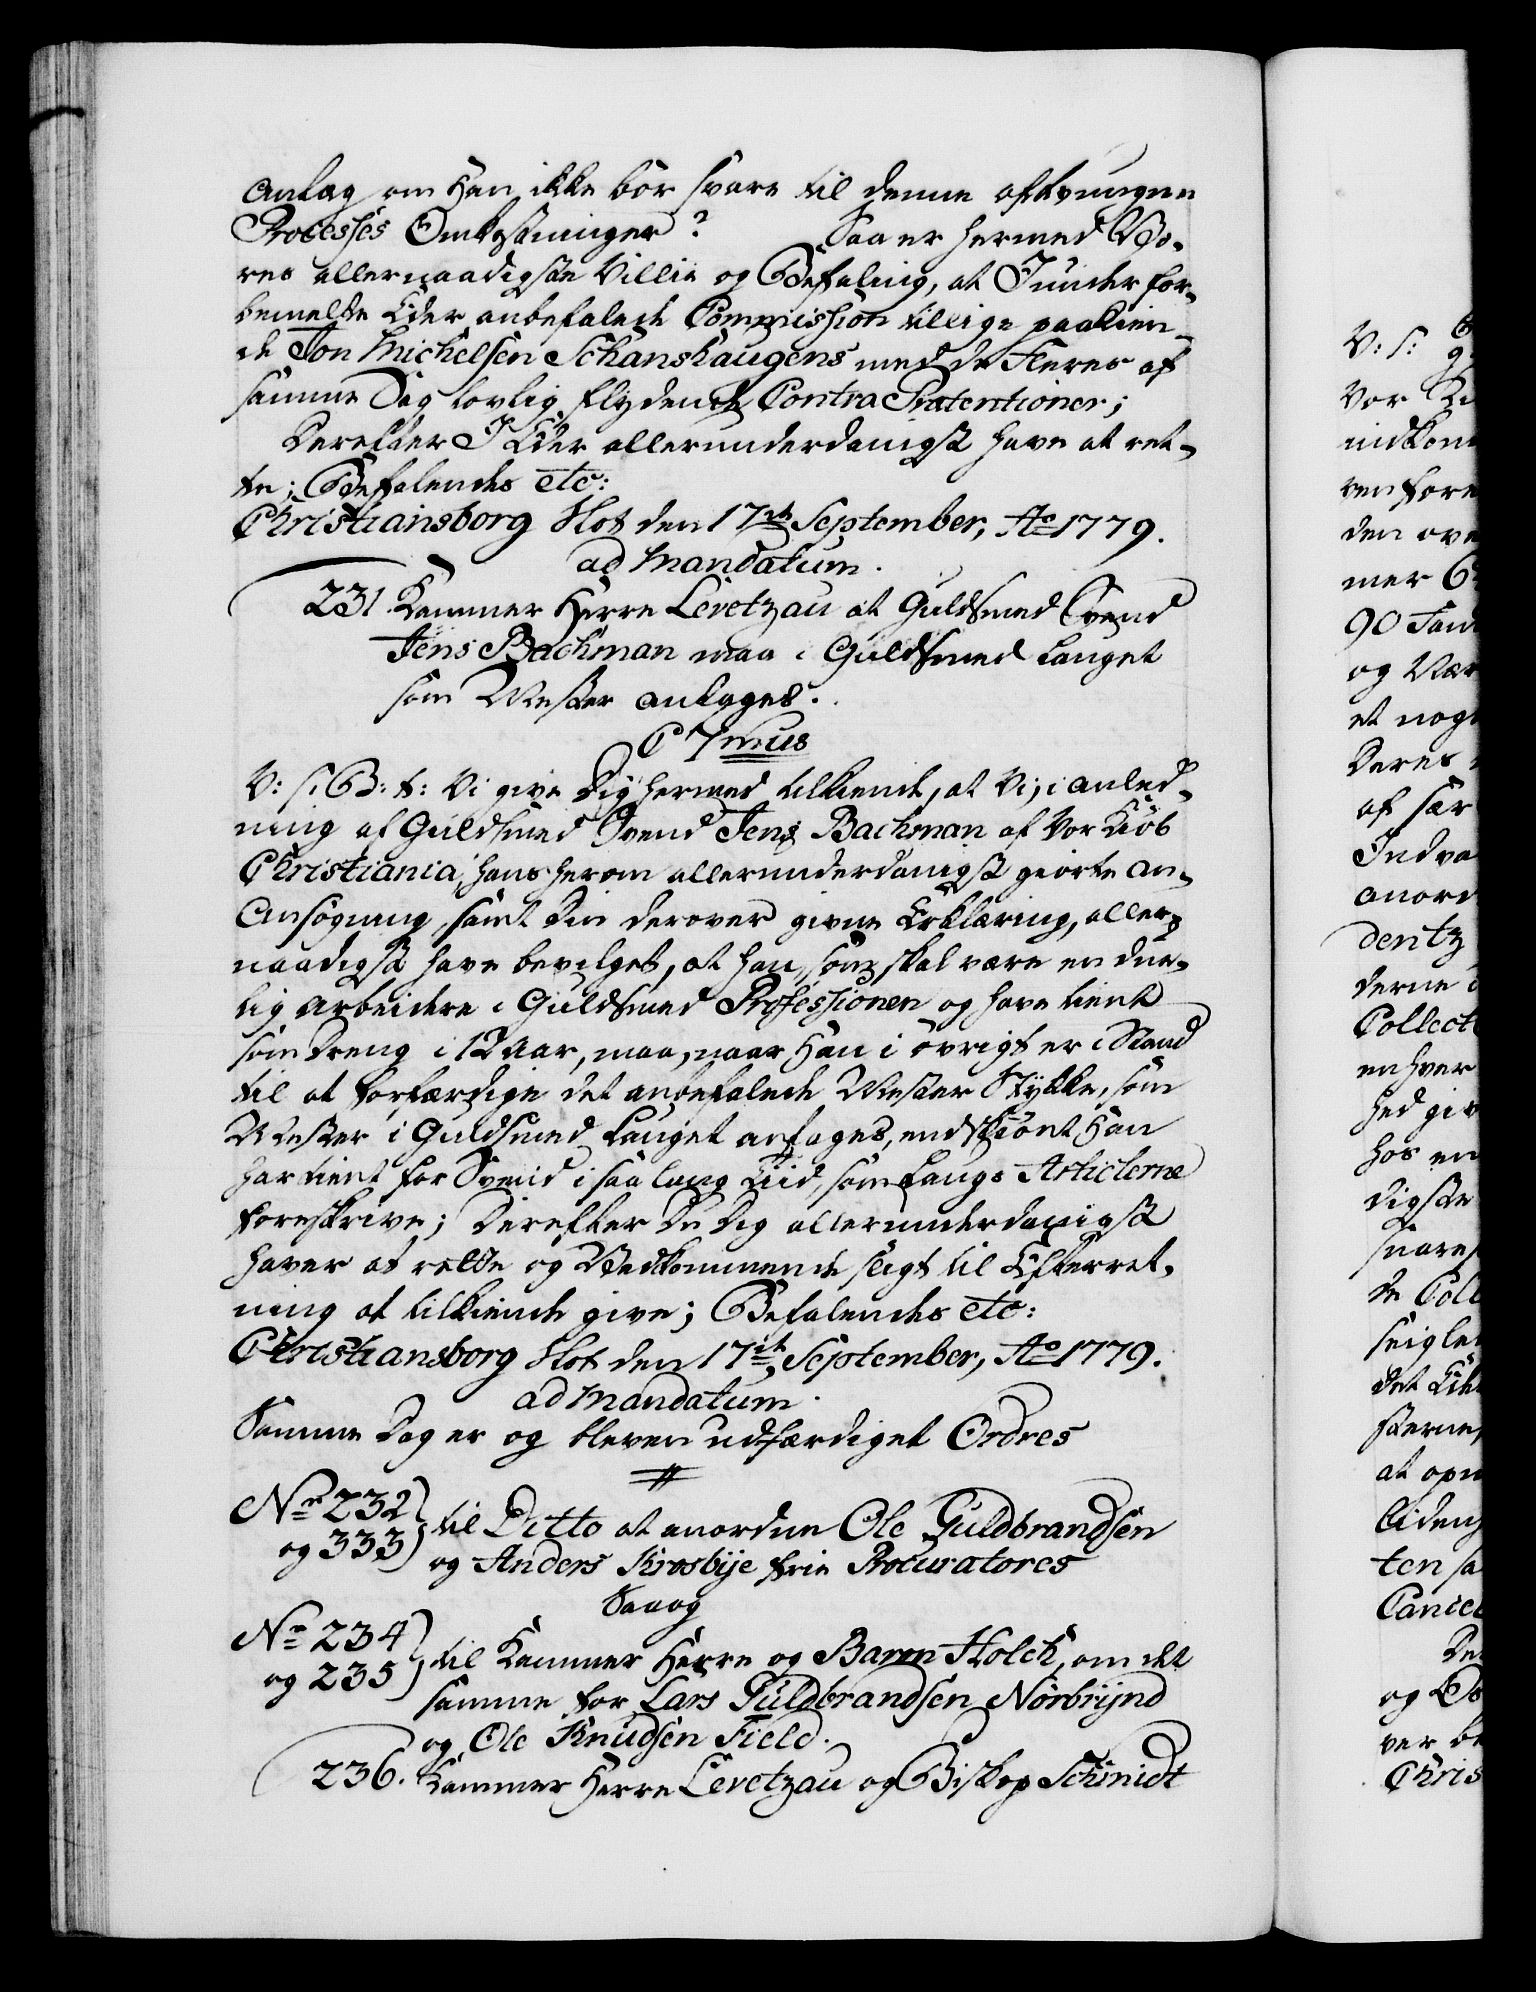 anlæg om Han ikke bør svare til denne aftvungne
Processes Omkostninger? Saa er hermed Vo-
res allernaadigste Villie og Befaling, at I under for-
bemelte Eder anbefalede Commission tillige paakien-
de Jon Michelsen Schanshaugens med de Fleres af
samme Sag lovlig flydende Contra Prætentioner;
Derefter I Eder allerunderdanigst have at ret-
te; Befalendes etc:
Christiansborg Slot den 17de September, Ao 1779.
ad Mandatum.
231. Kammer Herre Levetzau at Guldsmed Svend
Jens Bachman maa i Guldsmed Lauget
som Mester antages.
C 7mus
V: S: G: t: Vi give Dig hermed tilkiende, at Vi, i anled-
ning af Guldsmed Svend Jens Bachman af Vor Kiøb
Christiania, hans herom allerunderdanigst giorte an-
Ansøgning, samt Din derover givne Erklæring, aller-
naadigst have bevilget, at han, som skal være en due-
lig arbeidere i Guldsmed Professionen og have tient
som Dreng i 12 Aar, maa, naar Han i øvrigt er i Stand
til at forfærdige det anbefalede Mester Stykke, som
Mester i Guldsmed Lauget antages, endskiønt Han
har tient for Svend i saa lang Tiid, som Laugs Articlerne
foreskrive; Derefter Du Dig allerunderdanigst
haver at rette og Vedkommende sligt til Efterret-
ning at tilkiende give; Befalendes etc:
Christiansborg Slot den 17de September, Ao 1779.
ad Mandatum.
Samme Dag er og bleven udfærdiget Ordres
Nr 232
og 333) til Ditto at anordne Ole Guldbrandsen
og Anders Krosbye frie Procuratores
Saa og
Nr 234
og 235) til Kammer Herre og Baron Holck, om det
samme for Lars Guldbrandsen Nørbrynd
og Ole Knudsen Field.
236. Kammer Herre Levetzau og Biskop Schmidt
V: S:
Vor
nidkom
ren fore
den ove
mer
90
og Vær
et nog
Deres
af sær
Indva
anord
dentz
derne
Collect
en hver
hed giv
hos en
digste
snares
de Coll
seigle
det
sterne,
at opn
tiden,
ten sa
Cancel
De
og
ver be
Chris